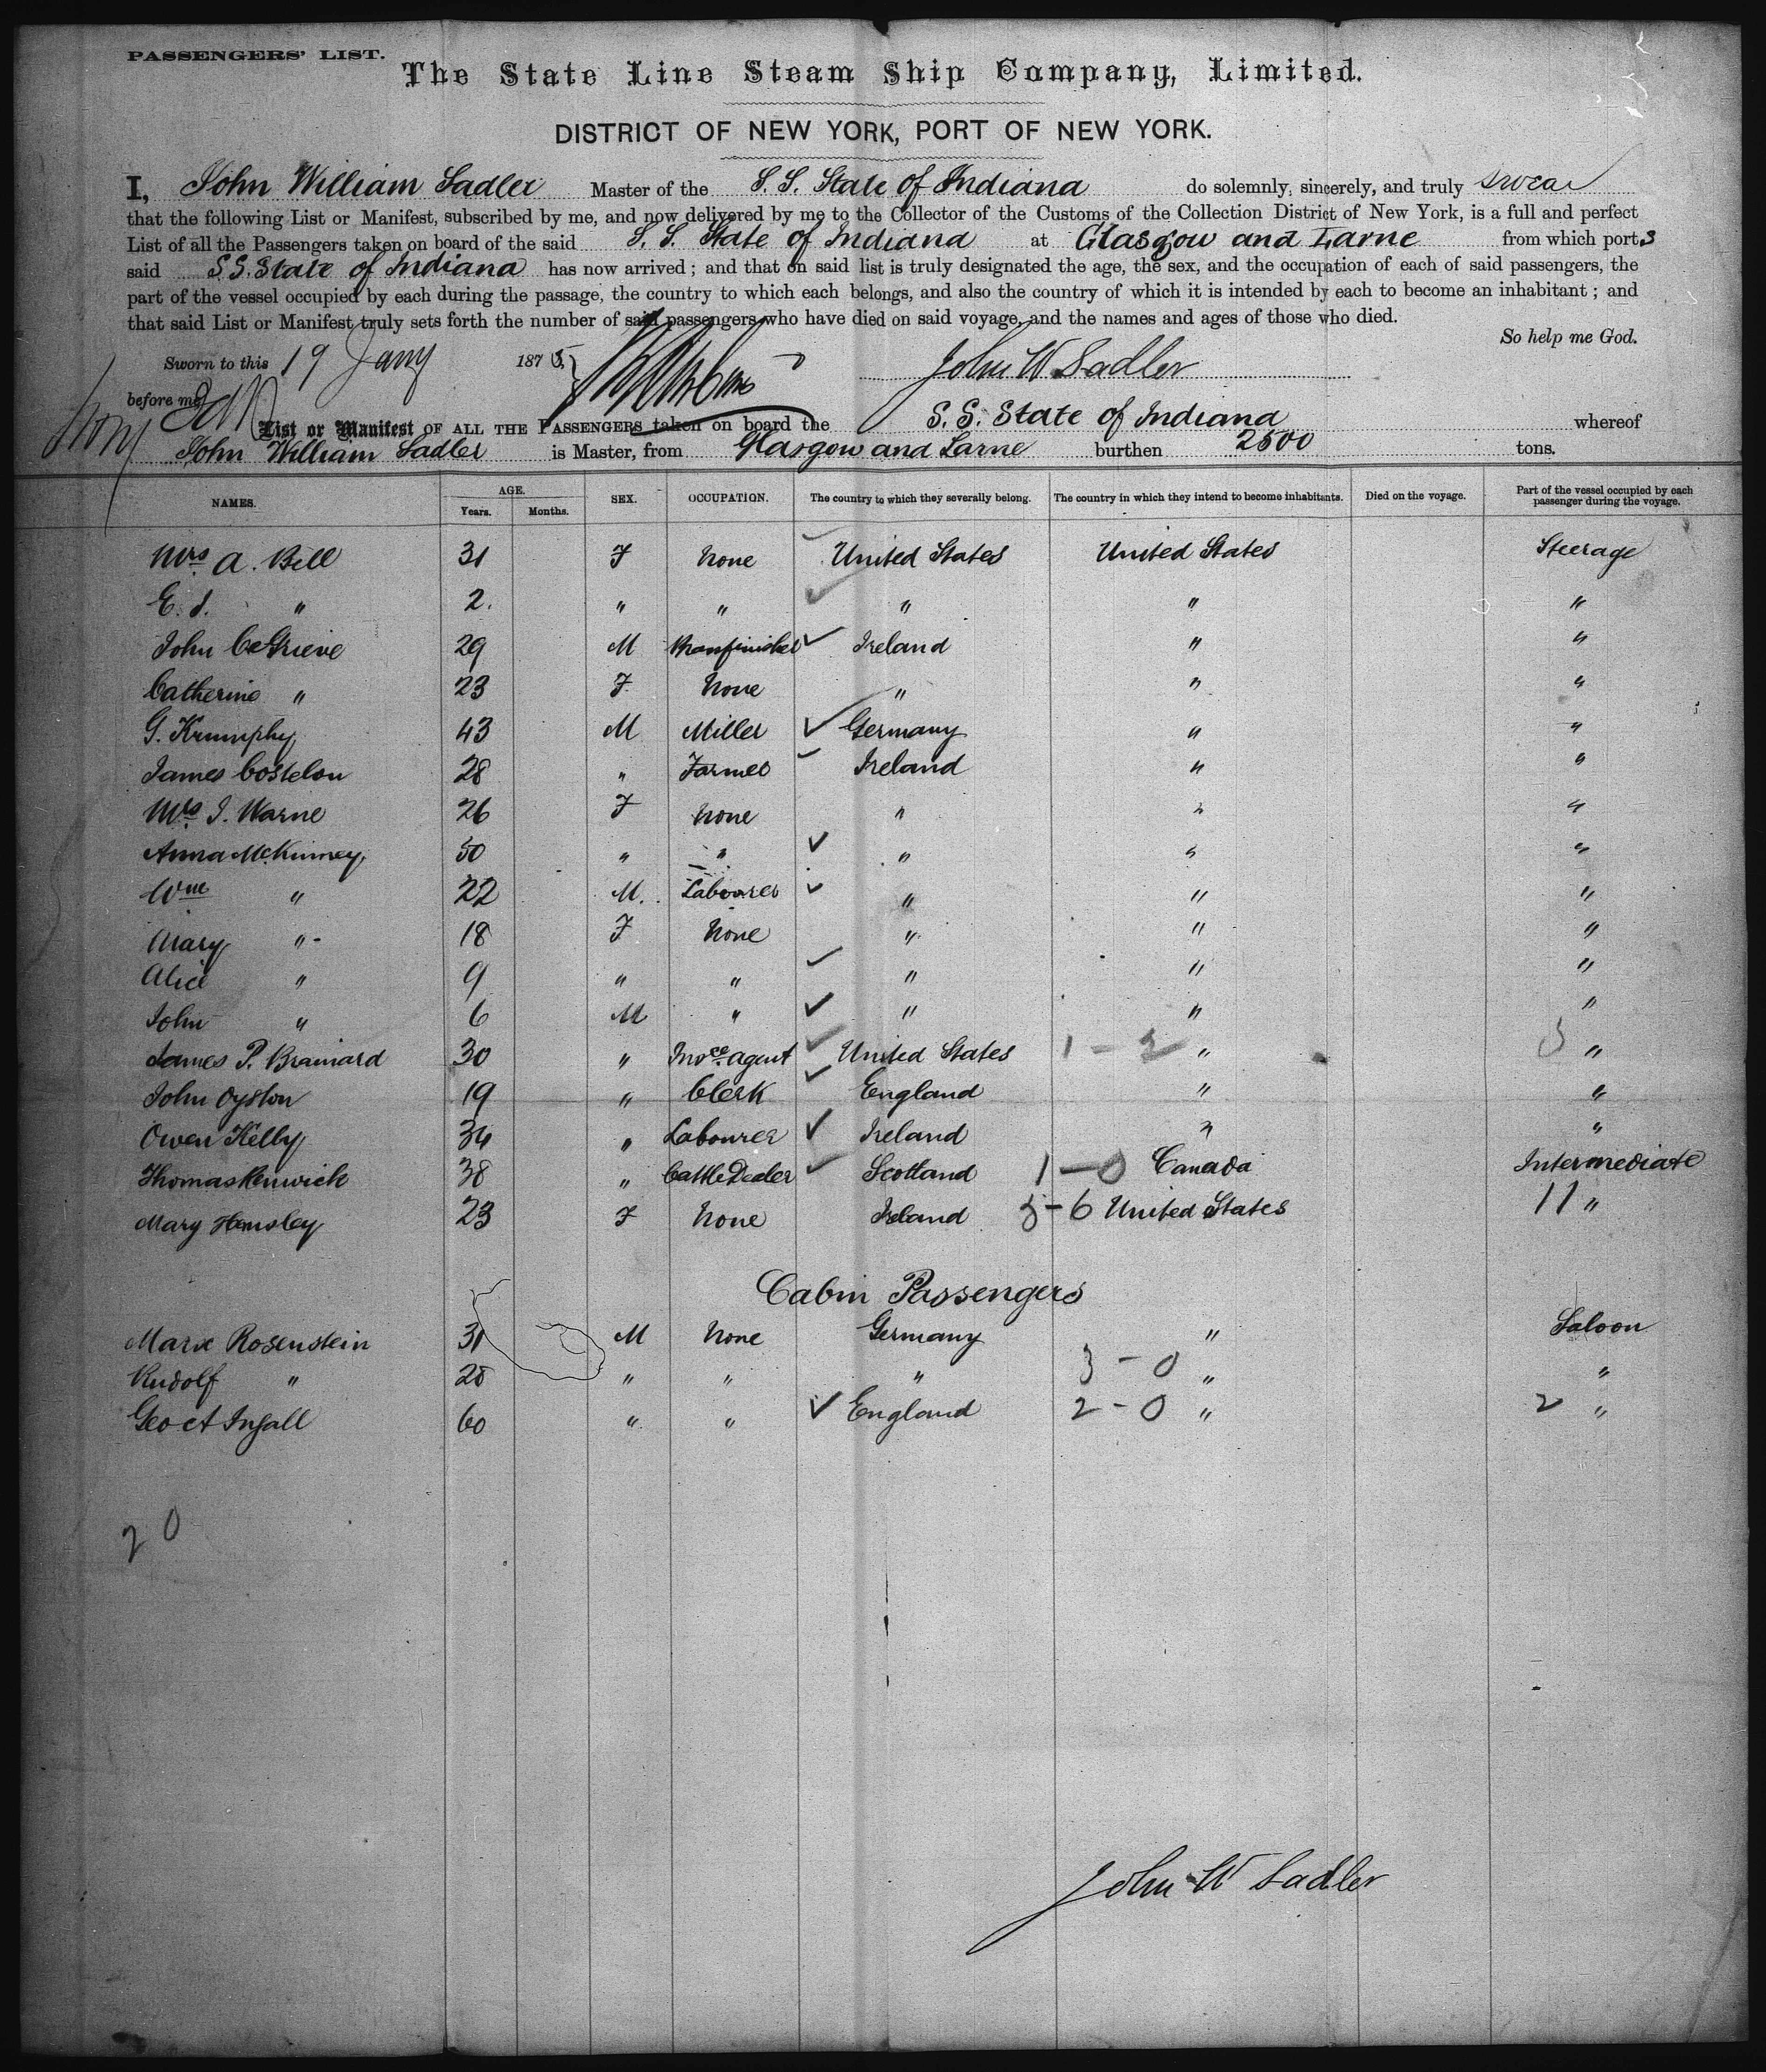 PASSENGERS' LIST.
The State Line Steam Ship Company, Limited.
DISTRICT OF NEW YORK, PORT OF NEW YORK.
I, John William Sadler Master of the S.S. State of Indiana do solemnly, sincerely, and truly swear
that the following List or Manifest, subscribed by me, and now delivered by me to the Collector of the Customs of the Collection District of New York, is a full and perfect
List of all the Passengers taken on board of the said S.S. State of Indiana at Glasgow and Larne from which ports
said S.S. State of Indiana has now arrived; and that on said list is truly designated the age, the sex, and the occupation of each of said passengers, the
part of the vessel occupied by each during the passage, the country to which each belongs, and also the country of which it is intended by each to become an inhabitant; and
that said List or Manifest truly sets forth the number of said passengers who have died on said voyage, and the names and ages of those who died.
So help me God.
Sworn to this 19 Jany 1875 John W. Sadler
before me
List or Manifest OF ALL THE PASSENGERS taken on board the S.S. State of Indiana whereof
John William Sadler is Master, from Glasgow and Larne burthen 2500 tons.
NAMES. AGE. Years. Months. SEX. OCCUPATION. The country to which they severally belong. The country in which they intend to become inhabitants. Died on the voyage. Part of the vessel occupied by each passenger during the voyage.
Mrs A. Bell 31 F None United States United States Steerage
E. J. " 2. " " " " "
John McGrieve 29 M Ireland " "
Catherine " 23 F. None " " "
G. Krumphy 43 M Miller Germany " "
James Costelou 28 " Farmer Ireland " "
Mrs J. Warne 26 F None " " "
Anna McKinney 50 " " " " "
Wm " 22 M. Labourer " " "
Mary " 18 F None " " "
Alice " 9 " " " " "
John " 6 M " " " "
James P. Brainard 30 " Insce agent United States 1 - 2 " "
John Oyston 19 " Clerk England " "
Owen Kelly 34 " Labourer Ireland " "
Thomas Renwick 38 " Cattle Dealer Scotland 1 - 0 Canada Intermediate
Mary Hemsley 23 F None Ireland 3 - 6 United States 11 "
Cabin Passengers
Marx Rosenstein 31 M None Germany " Saloon
Rudolf " 28 " " " 3 - 0 " "
Geo A Ingall 60 " " England 2 - 0 " 2 "
20
John W Sadler